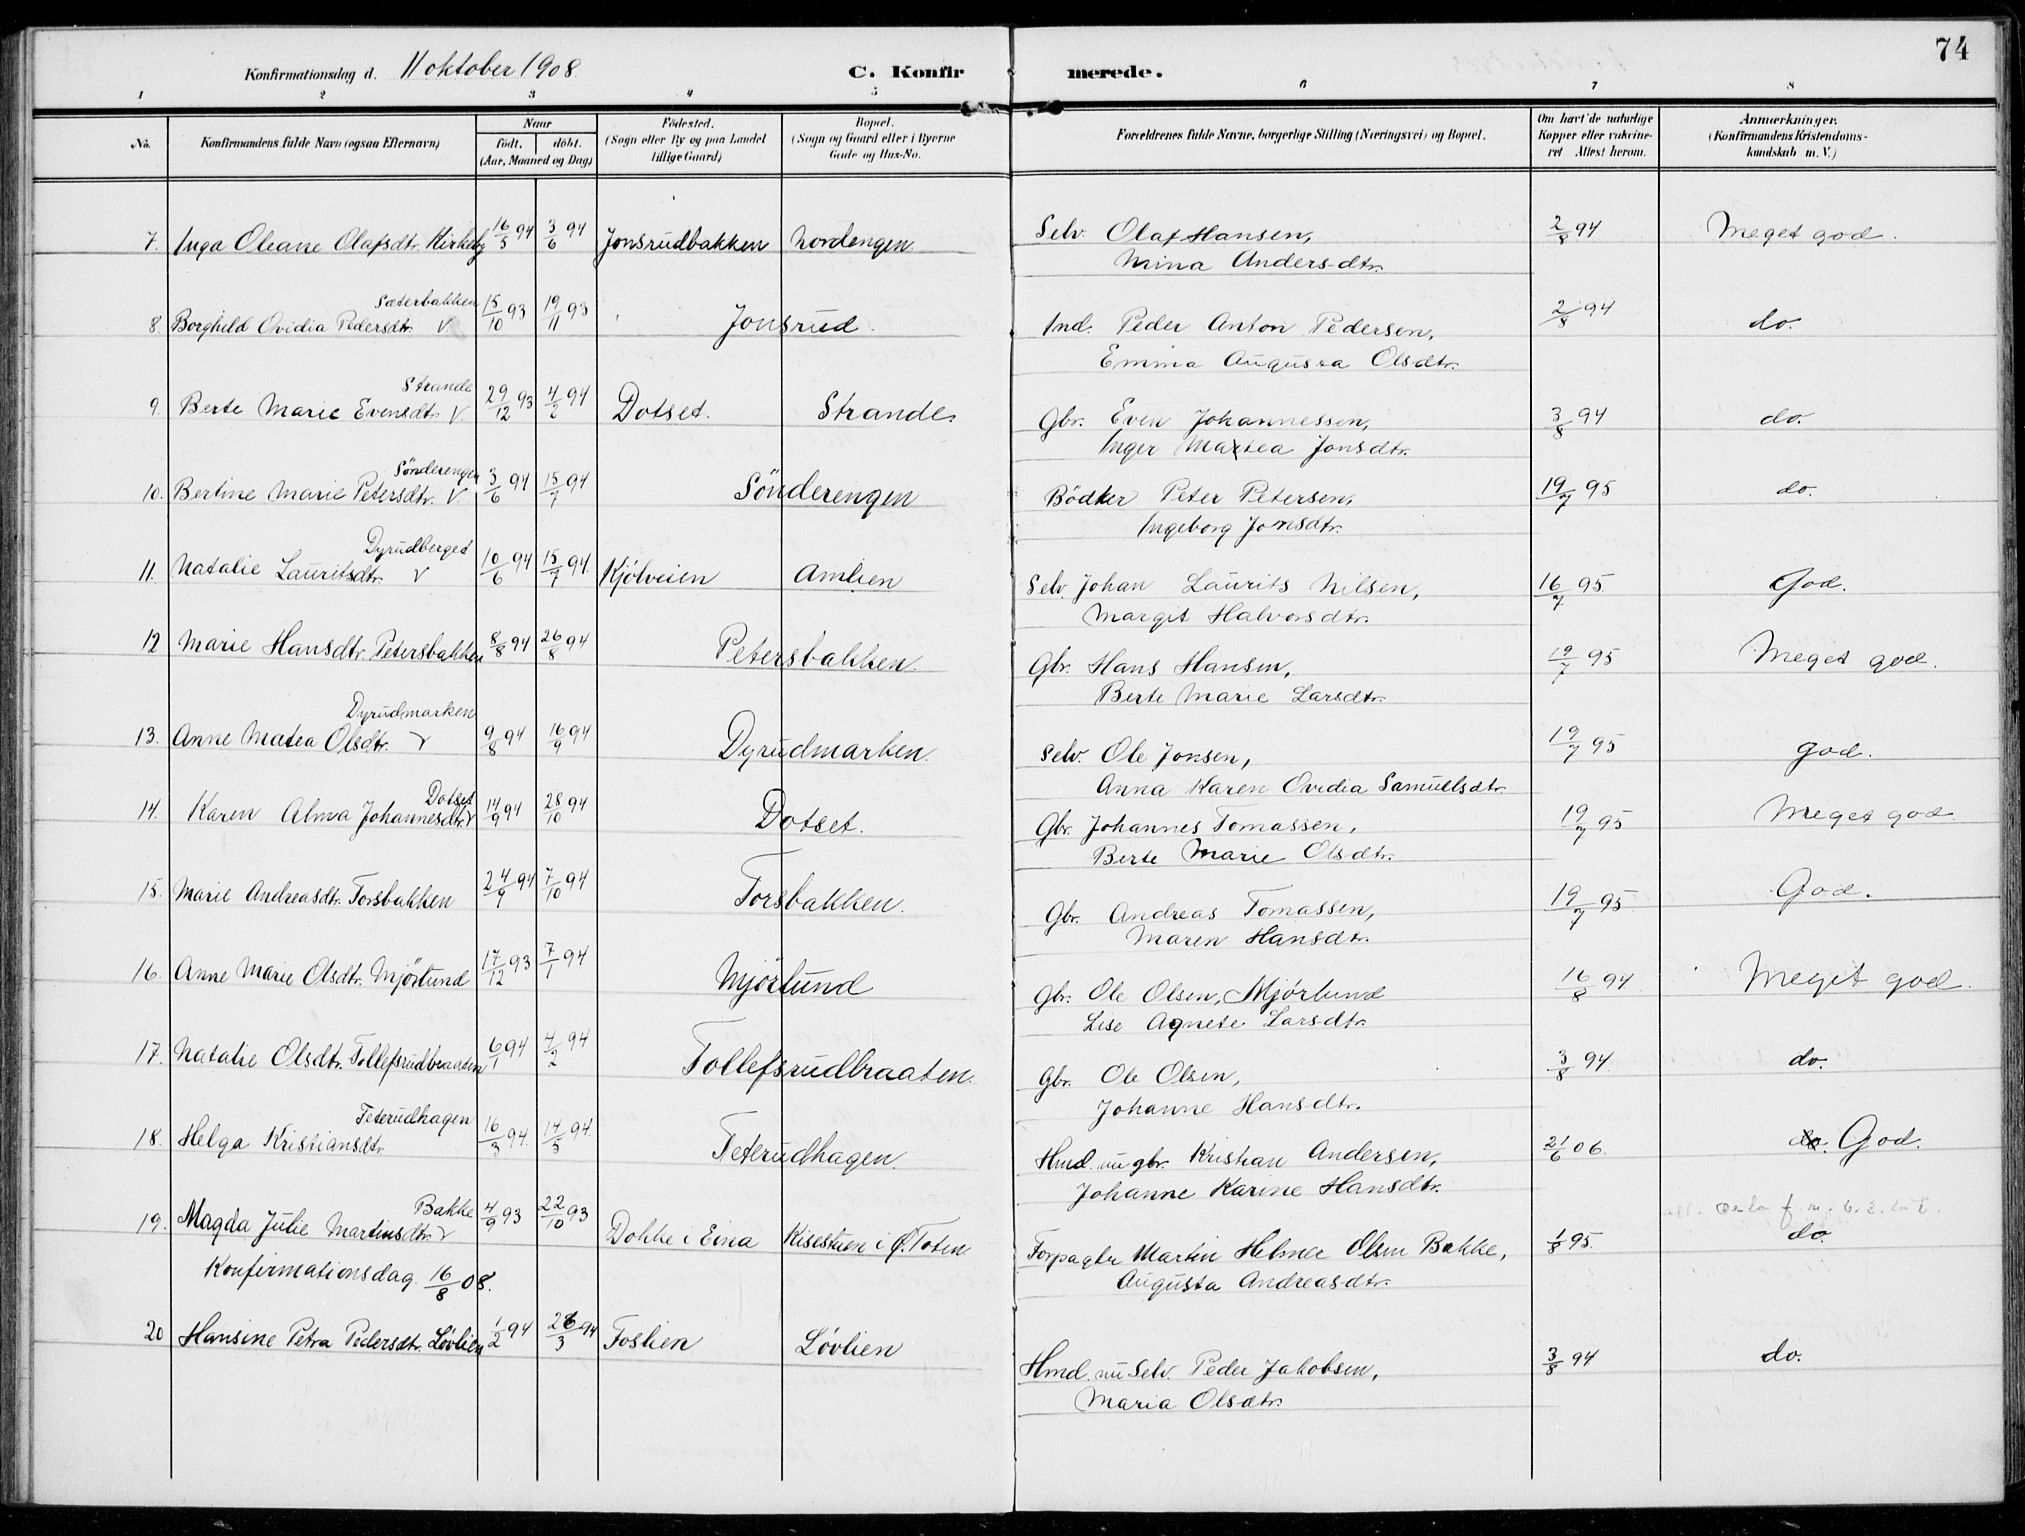 74
Konfirmationsdag d. 11 oktober 1908.
C. Konfirmerede.
1 2 3 4 5 6 7 8
No.
Konfirmandens fulde Navn (ogsaa Efternavn)
Naar
født. døbt.
(Aar, Maaned og Dag)
Fødested.
(Sogn eller By og paa Landet
tillige Gaard)
Bopæl.
(Sogn og Gaard eller i Byerne
Gade og Hus-No.
Forældrenes fulde Navne, borgerlige Stilling (Næringsvei) og Bopæl.
Om havt de naturlige
Kopper eller vakcine-
ret Attest herom.
Anmærkninger.
(Konfirmandens Kristendoms-
kundskab m. V.)
7. Inga Oleane Olafsdtr. Kirkeby 16/5 94 3/6 94 Jonsrudbakken Nordengen. Selv. Olaf Hansen, 2/8 94 Meget god.
Mina Andersdtr.
Sæterbakken
8. Borghild Ovidia Pedersdtr. V. 15/10 93 19/11 93 Jonsrud. Ind. Peder Anton Pedersen, 2/8 94 do.
Emma Augusta Olsdtr.
Strande
9. Berte Marie Evensdtr. V. 29/12 93 4/2 94 Dotset. Strande. Gbr. Even Johannessen, 3/8 94 do.
Inger Martea Jonsdtr.
Sönderengen
10. Bertine Marie Petersdtr. V. 3/6 94 15/7 94 Sönderengen Bödker Peter Petersen, 19/7 95 do.
Ingeborg Jonsdtr.
Dyrudberget
11. Natalie Lauritsdtr. V 10/6 94 15/7 94 Kjölveien Amlien Selv. Johan Laurits Nilsen, 16/7 95 God.
Margit Halvorsdtr.
12 Marie Hansdtr. Petersbakken 8/8 94 26/8 94 Petersbakken. Gbr. Hans Hansen, 19/7 95 Meget god.
Berte Marie Larsdtr.
Dyrudmarken
13. Anne Matea Olsdtr. V 9/8 94 16/9 94 Dyrudmarken. Selv. Ole Jonsen, 19/7 95 god.
Anna Karen Ovidia Samuelsdtr.
Dotset
14. Karen Alma Johannesdtr. V 14/9 94 28/10 94 Dotset. Gbr. Johannes Tomassen, 19/7 95 Meget god.
Berte Marie Olsdtr.
15. Marie Andreasdtr. Torsbakken 24/9 94 7/10 94 Torsbakken. Gbr. Andreas Tomassen, 19/7 95 God.
Maren Hansdtr.
16. Anne Marie Olsdtr. Mjörlund 17/12 93 7/1 94 Mjörlund Gbr. Ole Olsen, Mjörlund 16/8 94. Meget god.
Lise Agnete Larsdtr.
17. Natalie Olsdtr. Tollefsrudbraaten 6/1 94 4/2 94 Tollefsrudbraaten. Gbr. Ole Olsen, 3/8 94. do.
Johanne Hansdtr.
Teterudhagen
18. Helga Kristiansdtr. 16/3 94. 14/5 94. Teterudhagen. Hmd. nu gbr. Kristian Andersen, 21/6 06. do. God.
Johanne Karine Hansdtr.
Bakke
19. Magda Julie Martinsdtr. V 4/9 93 22/10 93 Dokke i Eina i Ø. Toten Forpagter Martin Helmer Olsen Bakke, 1/8 95. do.
Augusta Andreasdtr.
Konfirmationsdag 16/8 08.
20 Hansine Petra Pedersdtr. Lövlien 1/2 94 26/3 94 Foslien Lövlien Hmd. nu Selv. Peder Jakobsen, 3/8 94 do.
Maria Olsdtr.